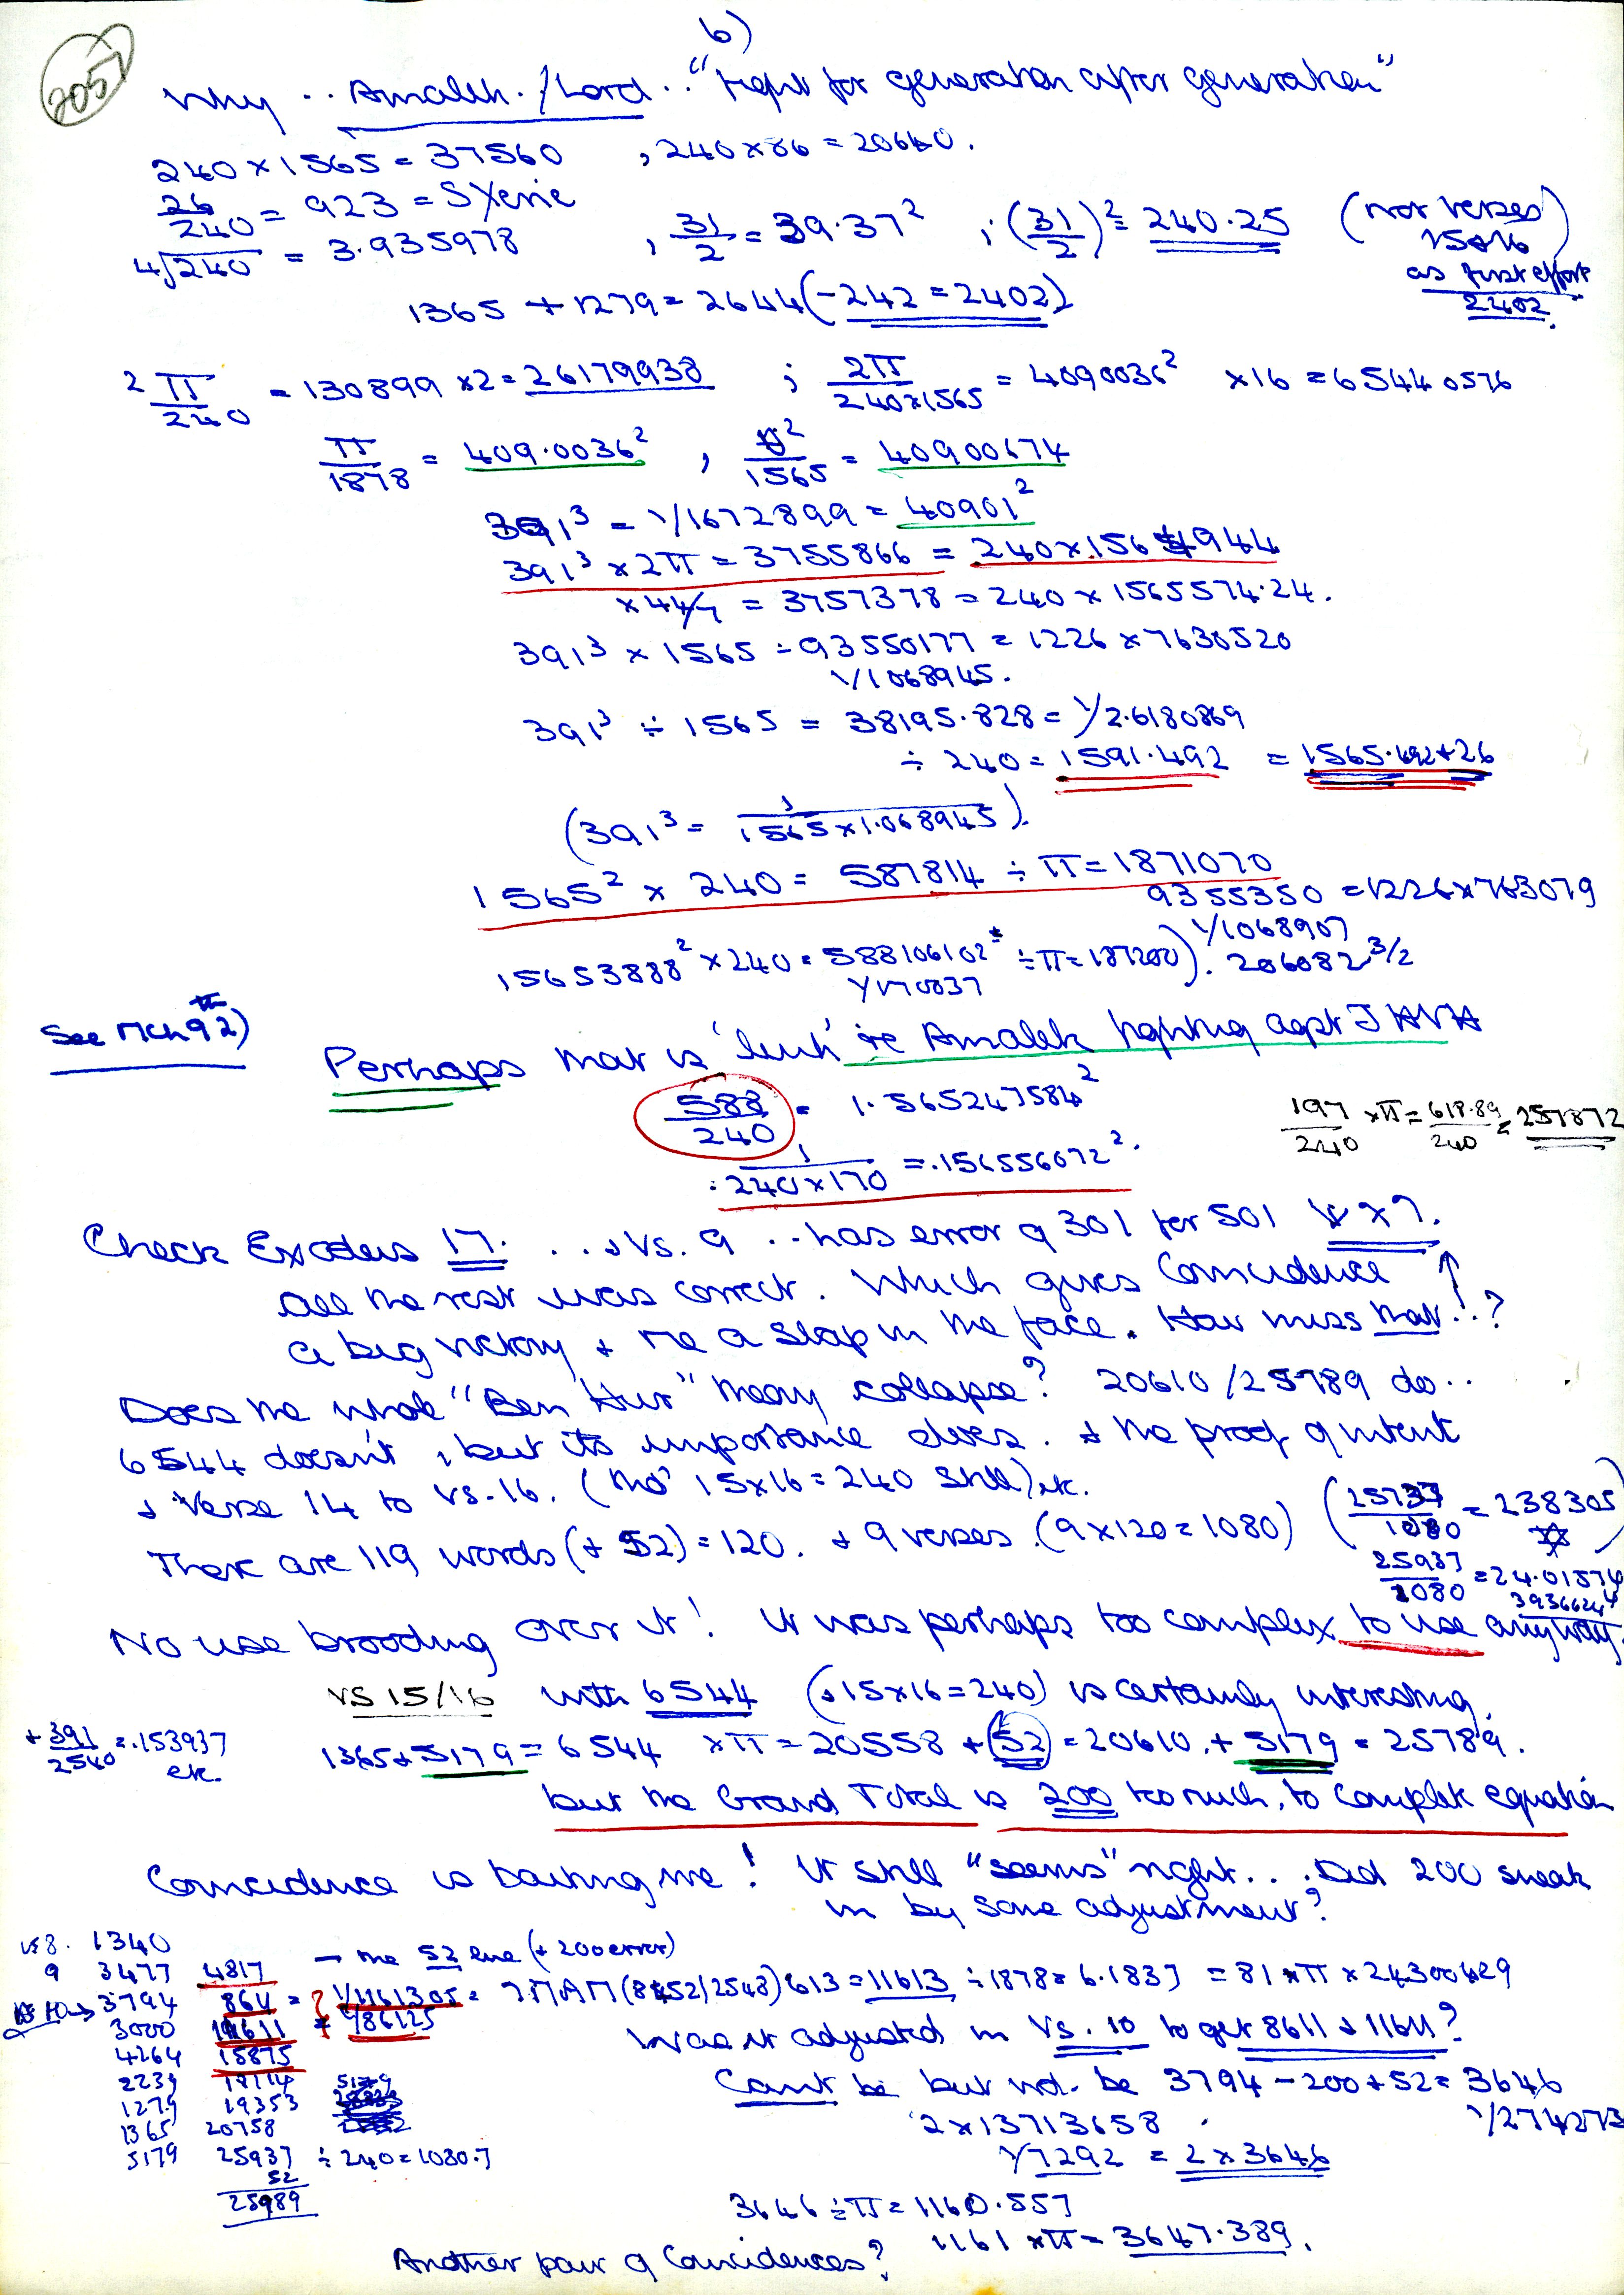 6)
2057
Why .. Amalek./Lord .. "fight for generation after generation"
240 × 1565 = 37560 , 240 × 86 = 20640.
26/240 = 923 = SXerie
4√240 = 3.935978 , 31/2 = 39.37² ; (31/2)² = 240.25 (not verses
15+16
as first effort
2402.
1365 + 1279 = 2644 (-242 = 2402)
2 π/240 = 130899 ×2 = 26179938 ; 2π/240×1565 = 4090036² ×16 = 65440576
π/1878 = 409.0036² , ²/1565 = 40900674
391³ = 1/1672899 = 40901²
391³ × 2π = 3755866 = 240 × 1564944
× 44/7 = 3757378 = 240 × 1565574.24.
391³ × 1565 = 93550177 = 1226 × 7630520
1/1068945.
391³ ÷ 1565 = 38195.828 = 1/2.6180869
÷ 240 = 1591.492 = 1565.492+26
(391³ = 1/1565×1.068945).
1565² × 240 = 587814 ÷ π = 1871070
9355350 = 1226×763079
1/1068907
15653888² × 240 = 588106102 ÷ π = 187200). 206082 3/2
1/170037
See MCh 9 2)
Perhaps that is 'link' re Amalek fighting agst JHVH
588/240 = 1.565247584²
197/240 × π = 618.89/240 = 257872
1/240×170 = .156556072².
Check Exodus 17. ...+ Vs. 9 .. has error of 301 for 501 ?.
All the rest was correct. Which gives Coincidence
a big victory + me a slap in the face. How miss that!..?
Does the whole "Ben Hur" theory collapse? 20610/25789 do..
6544 doesn't, but its importance does. + the proof of intent
+ Verse 14 to vs. 16. (tho' 15×16 = 240 still) etc.
There are 119 words (+ 52) = 120. + 9 verses. (9×120 = 1080) (25737/1080 = 238305)
25937/1080 = 24.01574
3936624⁴
No use brooding over it! It was perhaps too complex to use anyway.
vs 15/16 with 6544 (+ 15×16 = 240) is certainly interesting.
+ 391/2540 = .153937 etc.
1365 + 5179 = 6544 × π = 20558 + (52) = 20610, + 5179 = 25789.
but the Grand Total is 200 too much, to complete equation
Coincidence is baiting me! It still "seems" right... Did 200 sneak
in by some adjustment?
vs 8. 1340
9 3477 4817 — the 52 line (+ 200 error)
10 → 3794 864 = 1/1161305 = (8+52/2548) 613 = 11613 ÷ 1878 = 6.1837 = 81 × π × 24300429
3000 11611 = 1/86125
Was it adjusted in Vs. 10 to get 8611 + 11611?
4264 15875
2239 18114 5179
Cant be but not. be 3794 - 200 + 52 = 3646
1279 19353
1365 20758
2 × 13713658 . 1/274273
5179 25937 ÷ 240 = 1080.7
1/7292 = 2 × 3646
52
25989
3646 ÷ π = 1160.557
1161 × π = 3647.389.
Another pair of Coincidences?